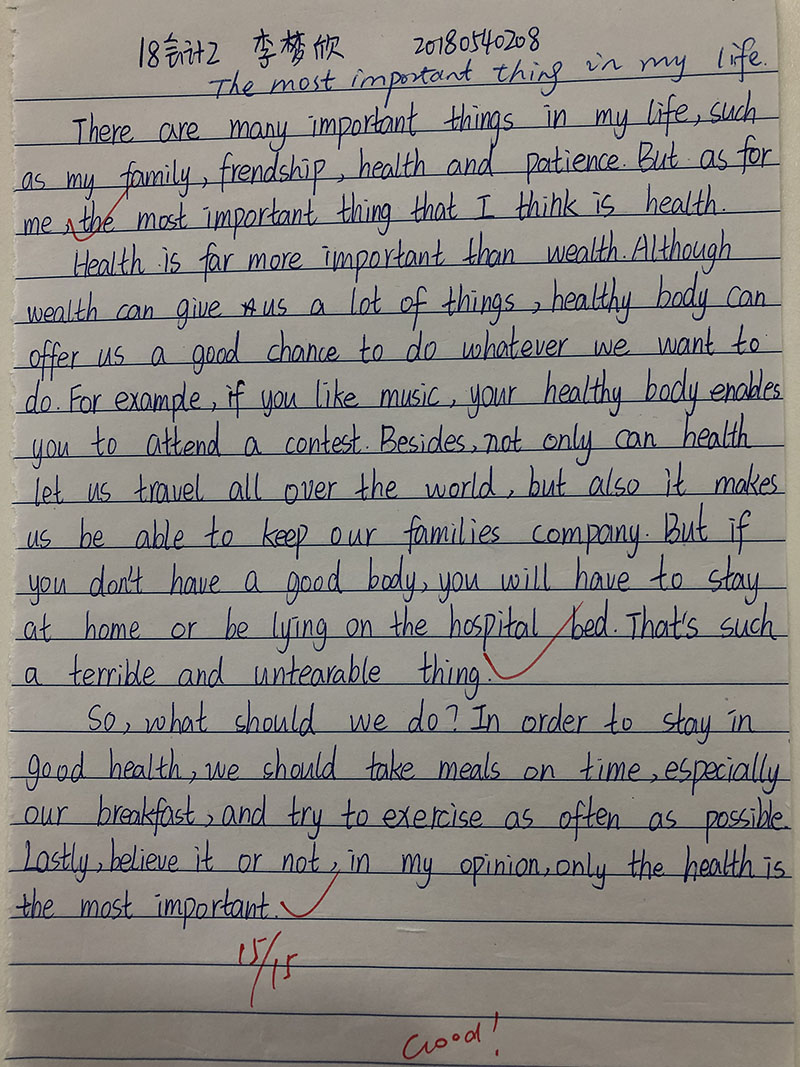 18会计2 李梦欣 20180540208
The most important thing in my life.
There are many important things in my life, such
as my family, frendship, health and patience. But as for
me, the most important thing that I think is health.
Health is far more important than wealth. Although
wealth can give us a lot of things, healthy body can
offer us a good chance to do whatever we want to
do. For example, if you like music, your healthy body enables
you to attend a contest. Besides, not only can health
let us travel all over the world, but also it makes
us be able to keep our families company. But if
you don't have a good body, you will have to stay
at home or be lying on the hospital bed. That's such
a terrible and untearable thing.
So, what should we do? In order to stay in
good health, we should take meals on time, especially
our breakfast, and try to exercise as often as possible.
Lastly, believe it or not, in my opinion, only the health is
the most important.
15/15
Good!